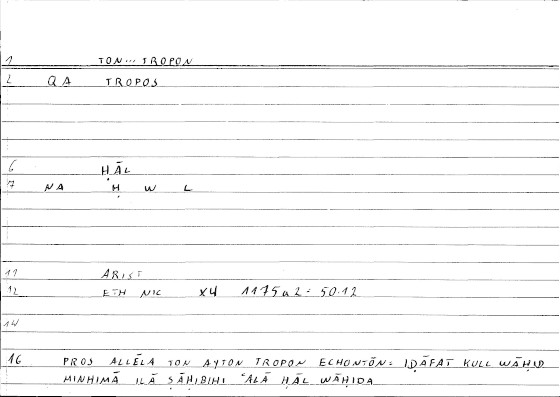 1 TON... TROPON
2 QA TROPOS
6 ḤĀL
7 NA Ḥ W L
11 ARIST
12 ETH NIC X4 1175a2 = 50.12
14
16 PROS ALLĒLA TON AYTON TROPON ECHONTŌN = IḌĀFAT KULL WĀḤID
MINHIMĀ ILĀ ṢĀḤIBIHI ʿALĀ ḤĀL WĀḤIDA